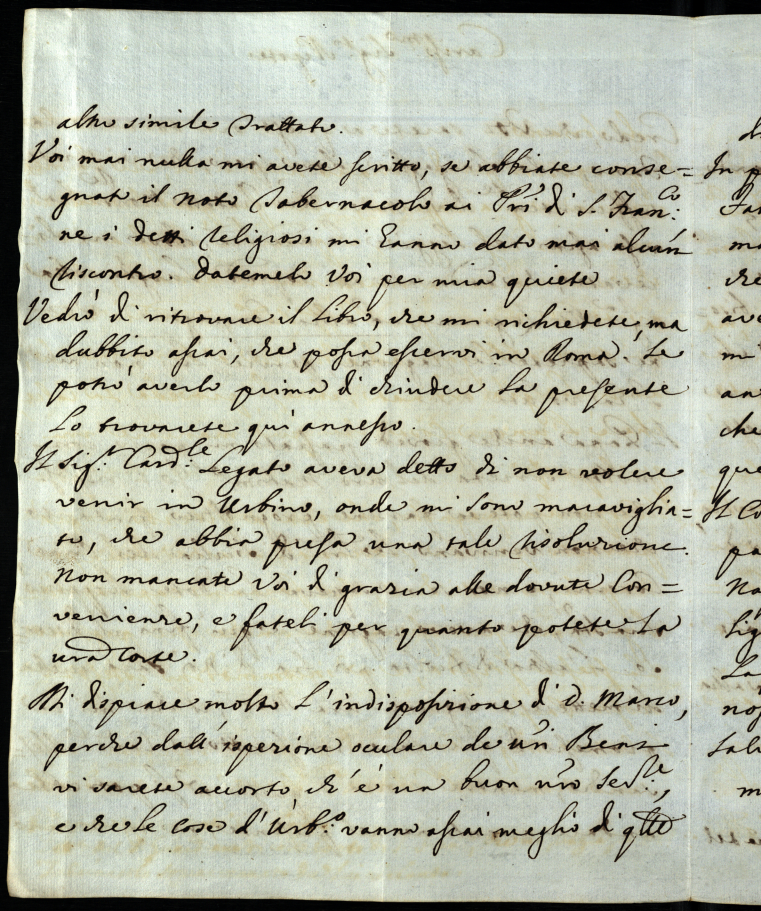 altro simile trattato.
Voi mai nulla mi avete scritto, se abbiate conse=
gnato il noto Tabernacolo ai Pri di S. Fran:co
ne i detti Religiosi mi hanno dato mai alcun
riscontro. Datemelo Voi per mia quiete
Vedrò di ritrovare il Libro, che mi richiedete, ma
dubbito assai, che possa esservi in Roma. Se
potrò averlo prima di chiudere la presente
lo trovarete quì annesso.
Il Sig.r Card:le Legato aveva detto di non volere
venir in Urbino, onde mi sono maraviglia=
to, che abbia presa una tale risoluzione.
Non mancate Voi di grazia alle dovute Con=
venienze, e fateli per quanto potete la
vra Corte.
Mi dispiace molto l'indisposizione di D. Marco,
perche dall'ispezione oculare de vri Beni
vi sarete accorto ch'è un buon vro
e che le cose d'Urb:o vanno assai meglio di qlle
In
ma
che
ave
mi
an
che
que
Il Co
pa
Na
Sig
La
nos
salu
m